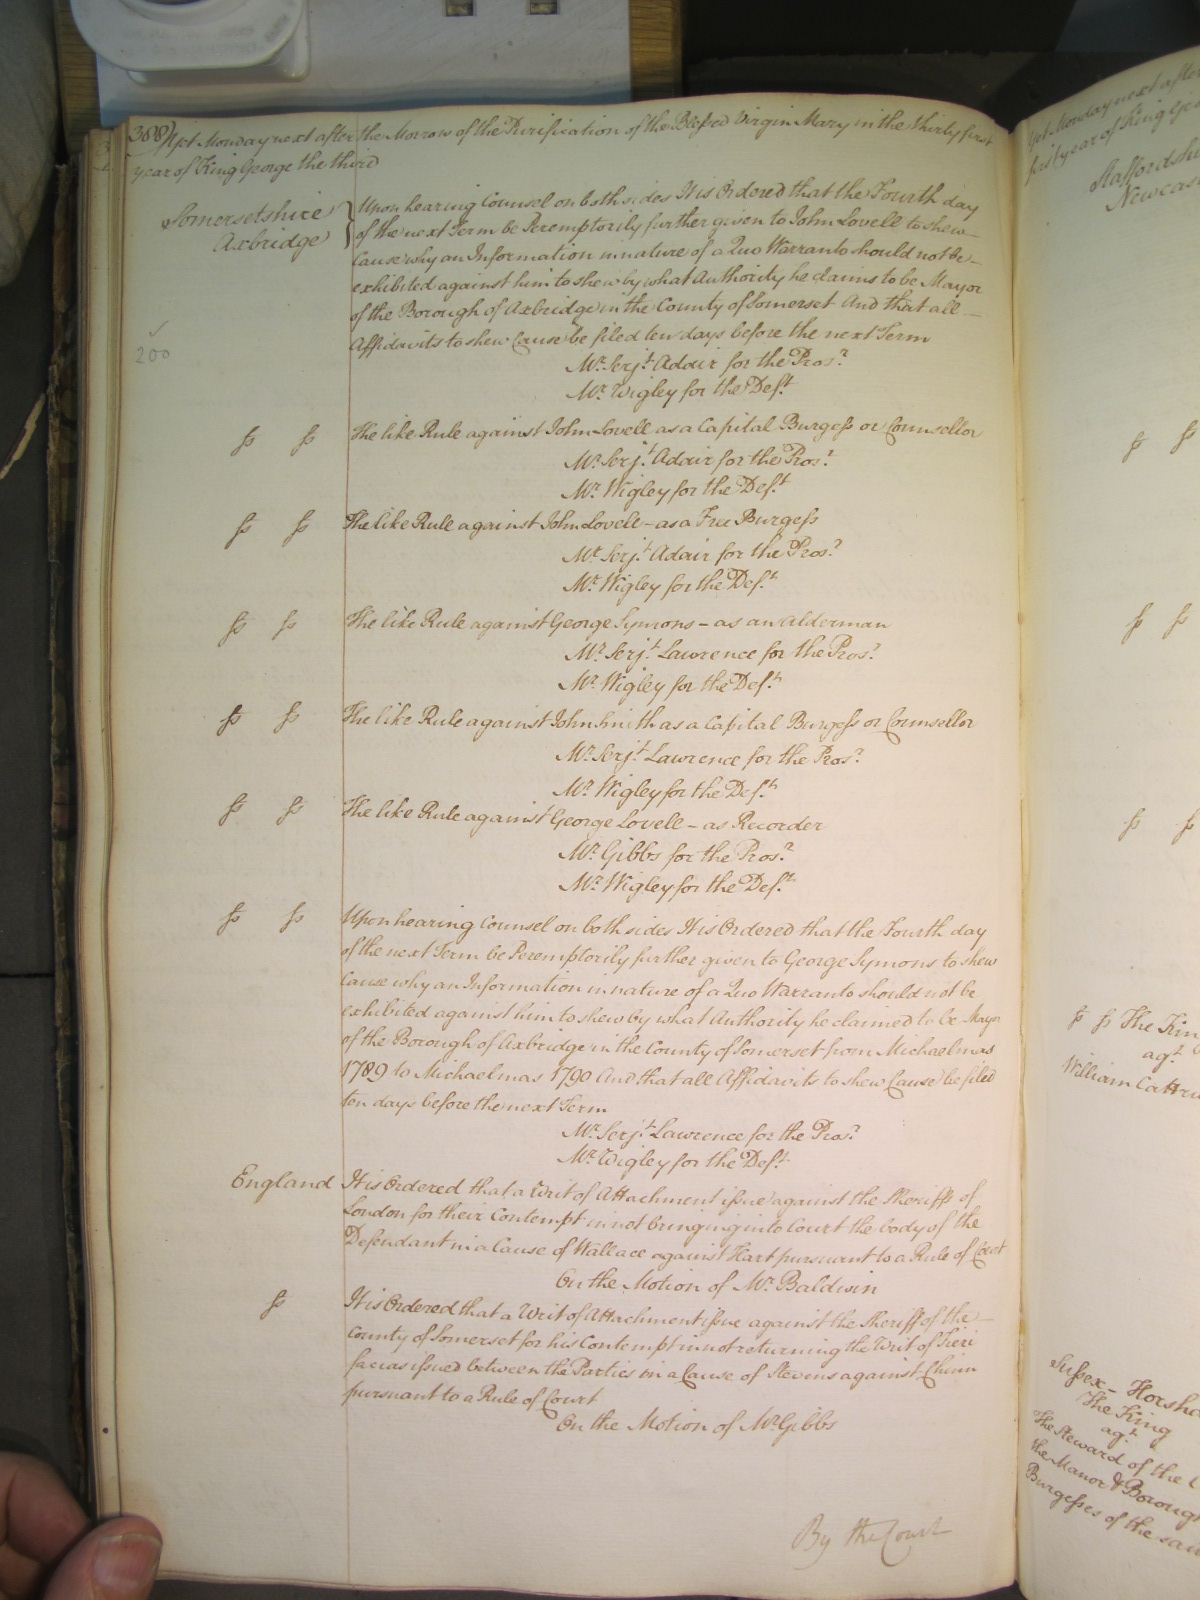 388) Yet Monday next after the Morrow of the Purification of the Blessed Virgin Mary in the thirty first
year of King George the third
Somersetshire
Axbridge
Upon hearing Counsel on both sides It is Ordered that the Fourth day
of the next Term be Peremptorily further given to John Lovell to shew
Cause why an Information in nature of a Quo Warranto should not be
exhibited against him to shew by what Authority he claims to be Mayor
of the Borough of Axbridge in the County of Somerset And that all
Affidavits to shew Cause be filed ten days before the next Term
200
Mr. Serjt. Adair for the Prosr.
Mr. Wigley for the Deft.
ss ss The like Rule against John Lovell as a Capital Burgess or Counsellor
Mr. Serjt. Adair for the Prosr.
Mr. Wigley for the Deft.
ss ss The like Rule against John Lovell – as a Free Burgess
Mr. Serjt. Adair for the Prosr.
Mr. Wigley for the Deft.
ss ss The like Rule against George Symons – as an Alderman
Mr. Serjt. Lawrence for the Prosr.
Mr. Wigley for the Deft.
ss ss The like Rule against John Smith as a Capital Burgess or Counsellor
Mr. Serjt. Lawrence for the Prosr.
Mr. Wigley for the Deft.
ss ss The like Rule against George Lovell – as Recorder
Mr. Gibbs for the Prosr.
Mr. Wigley for the Deft.
ss ss Upon hearing Counsel on both sides It is Ordered that the Fourth day
of the next Term be Peremptorily further given to George Symons to shew
Cause why an Information in nature of a Quo Warranto should not be
exhibited against him to shew by what Authority he claimed to be Mayor
of the Borough of Axbridge in the County of Somerset from Michaelmas
1789 to Michaelmas 1790 And that all Affidavits to shew Cause be filed
ten days before the next Term
Mr. Serjt. Lawrence for the Prosr.
Mr. Wigley for the Deft.
England It is Ordered that a Writ of Attachment issue against the Sheriffs of
London for their Contempt in not bringing into Court the body of the
Defendant in a Cause of Wallace against Hart pursuant to a Rule of Court
On the Motion of Mr. Baldwin
ss It is Ordered that a Writ of Attachment issue against the Sheriff of the
County of Somerset for his Contempt in not returning the Writ of Fieri
facias issued between the Parties in a Cause of Stevens against Chinn
pursuant to a Rule of Court
On the Motion of Mr. Gibbs
By the Court
Yet Monday next after
first year of King Geo
Staffordshi
Newcas
ss ss
ss ss
ss ss
ss ss The Kin
agt.
William Cattru
Sussex – Horsha
The King
agt.
The Steward of the
the Manor & Boroug
Burgesses of the sai